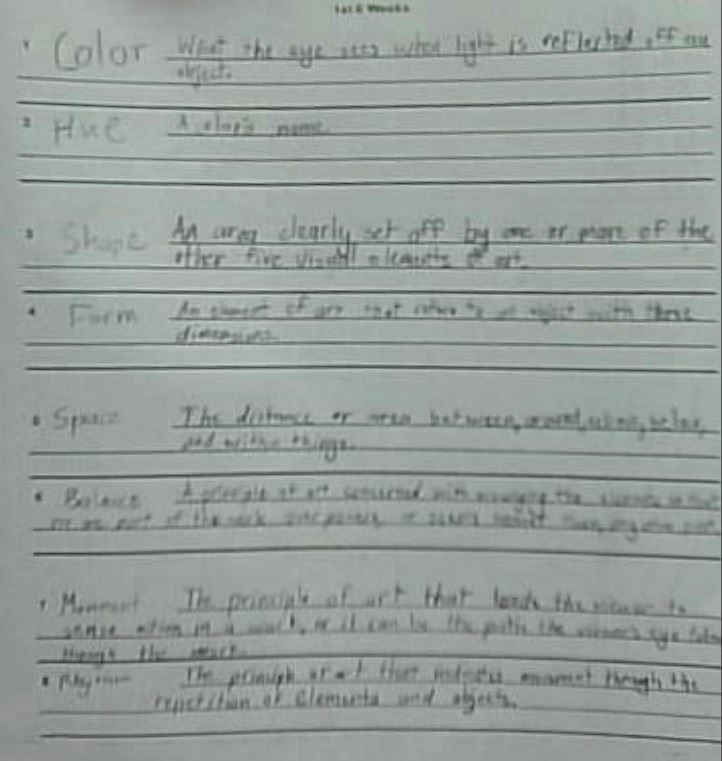 1st 6 Weeks
1 Color What the eye sees when light is reflected off an
object.
2 Hue A color's name
3 Shape An area clearly set off by one or more of the
other five visual elements of art.
4 Form An element of art that refers to an object with three
dimensions.
5 Space The distance or area between, around, above, below,
and within things.
6 Balance A principle of art concerned with arranging the elements so that
no one part of the work overpowers, or seems heavier than, any other part.
7 Movment The principle of art that leads the viewer to
sense action in a work, or it can be the path the viewer's eye follows
though the work.
8 The principle of art that indicates movement through the
repetition of elements and objects.